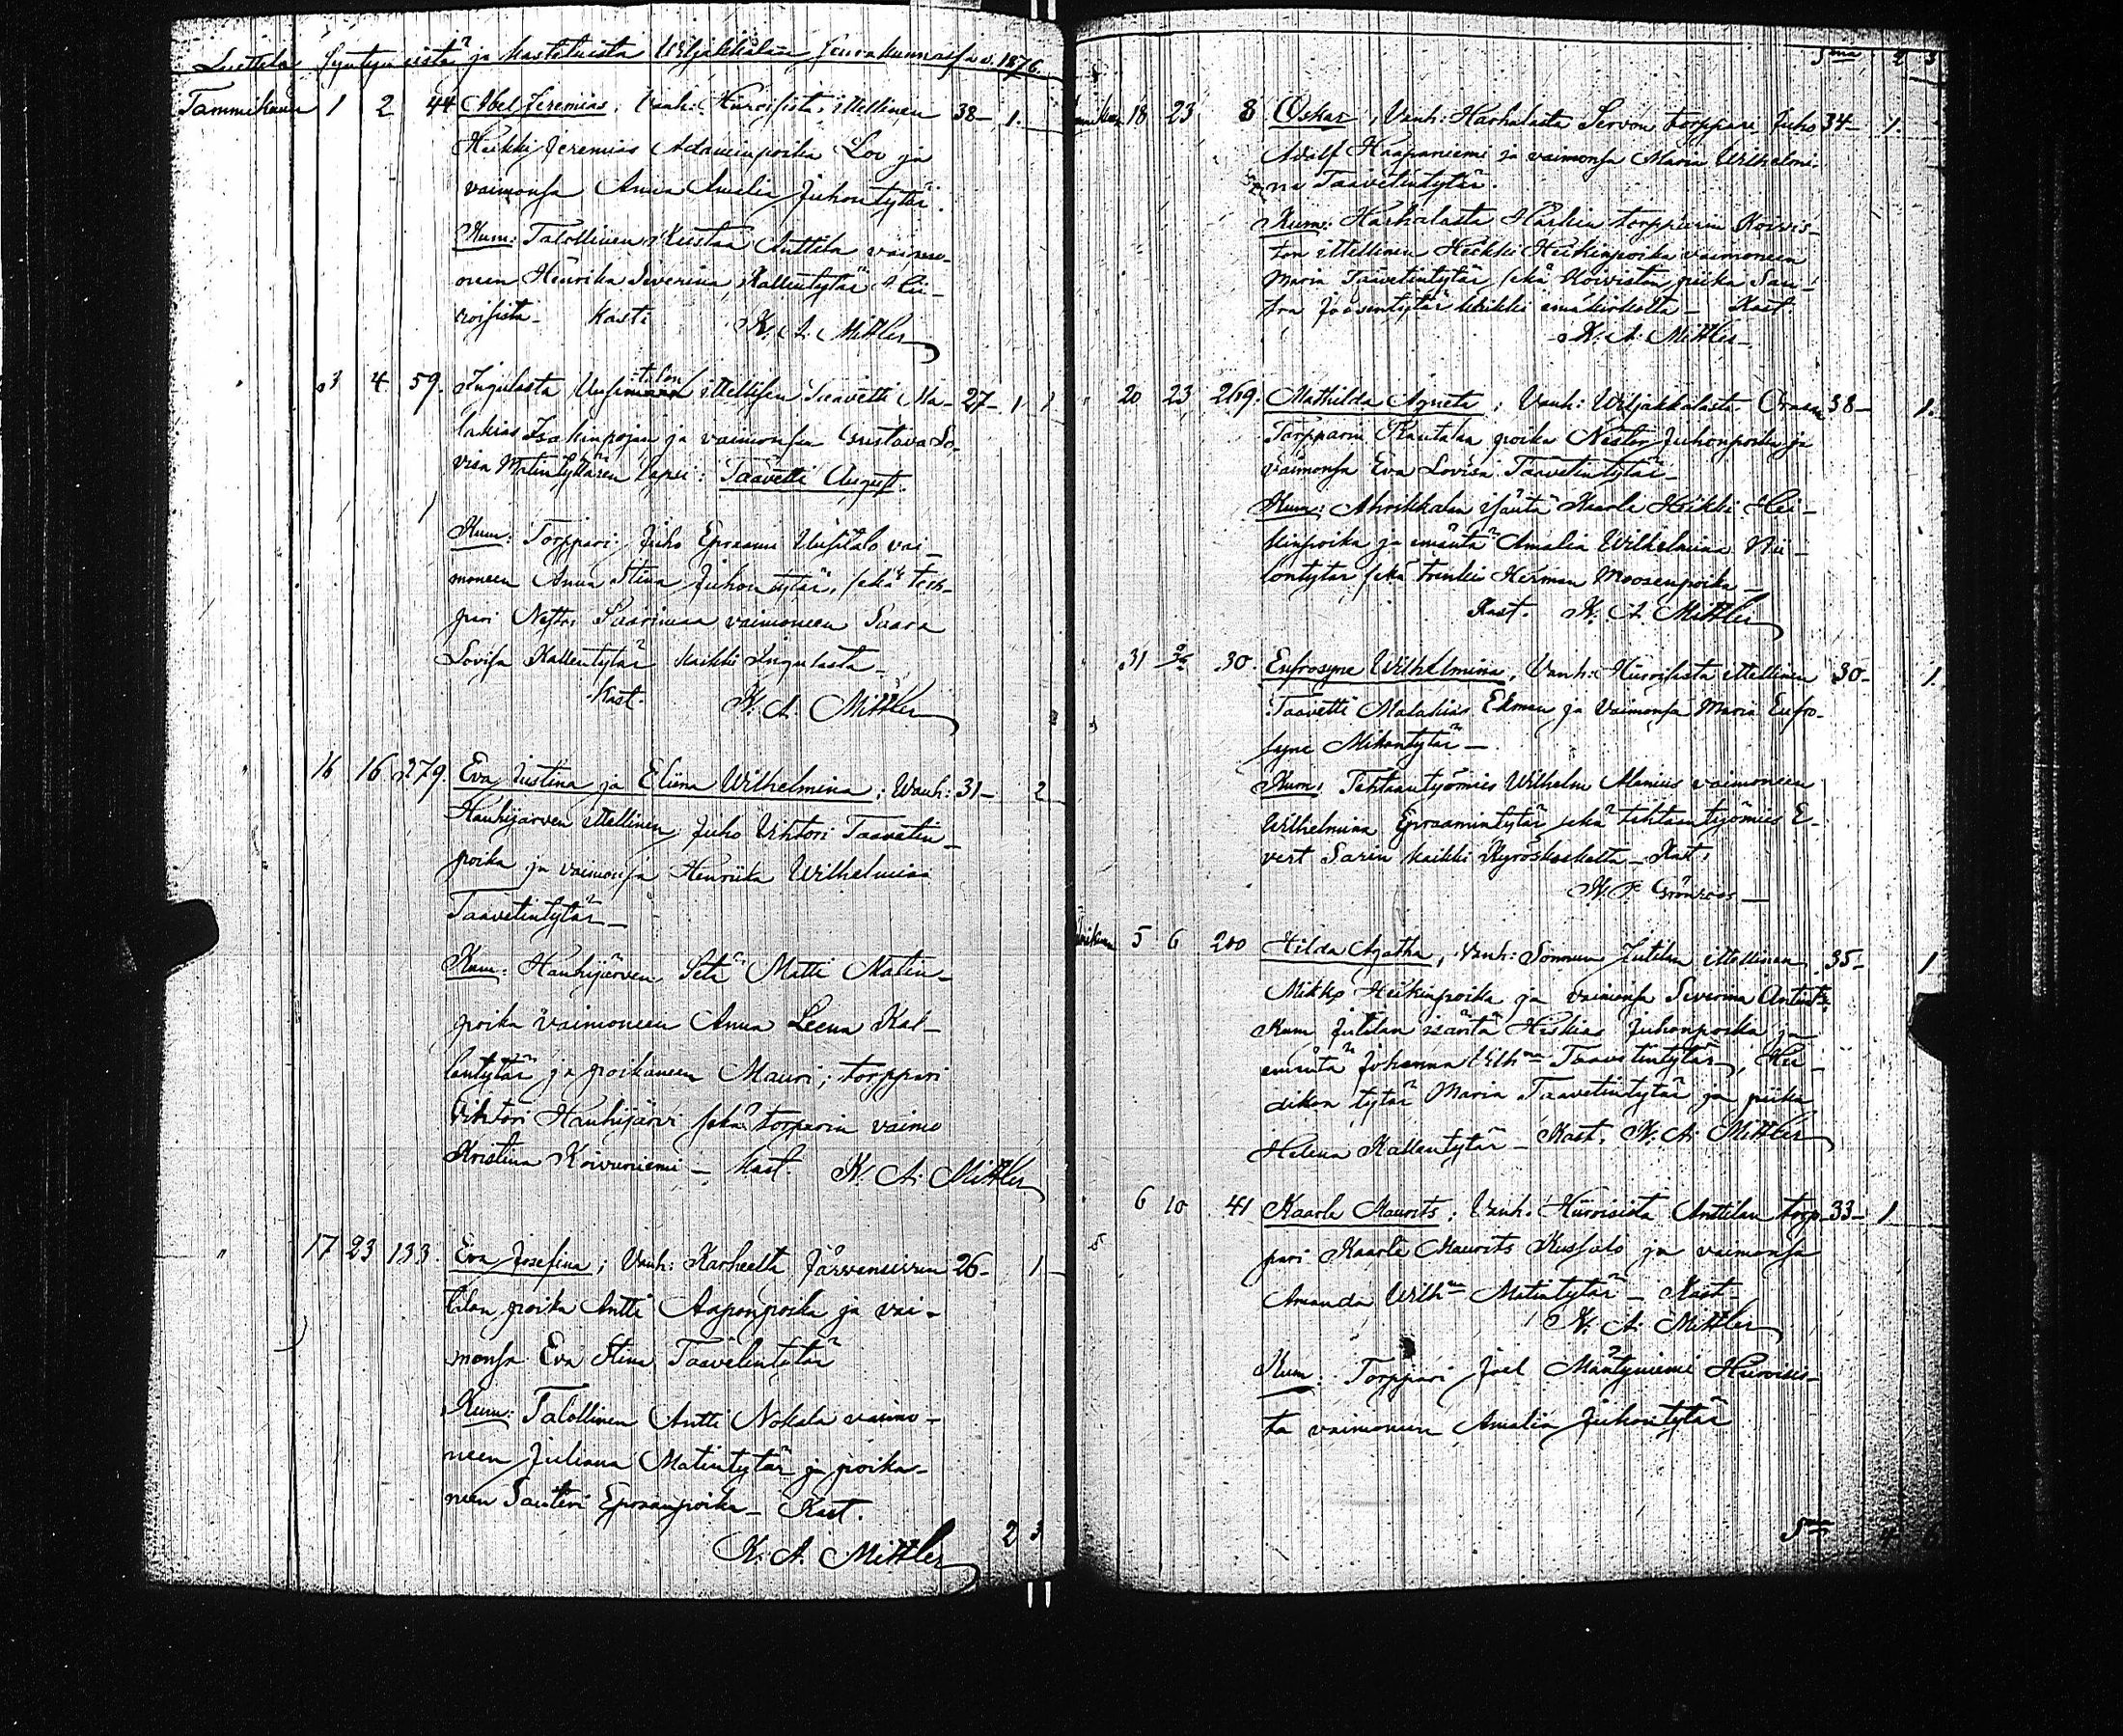 Luettelo Syntyneistä ja kastetuista Wiljakkalan seurakunnassa v. 1876.
Tammikuun 1 2 44 Abel Jeremias; Vanh: Hiiroisista ittellinen 38– 1.
Heikki Jeremias Adaminpoika Loo ja
vaimonsa Anna Amalia Juhontytär.
Kum: Talollinen Kustaa Anttila vaimo-
neen Henrika Severina Kallentytär Hii-
roisista– Kast:
K. A. Mittler
3 4 59. Ingulasta Uusi talon ittellisen Taavetti Ma- 27– 1
lakias Isakinpojan ja vaimonsa Gustava Lo-
visa Matintyttären lapsi: Taavetti August.
Kum: Torppari Juho Epraami Uusitalo vai-
moneen Anna Stina Juhontytär, sekä torp-
pari Nestor Saarimaa vaimoneen Saara
Lovisa Kallentytär kaikki Ingulasta–
Kast. K. A. Mittler
16 16 279. Eva Justina ja Eliina Wilhelmina; Wanh: 31– 2
Hanhijärven ittellinen Juho Vihtori Taavetin-
poika ja vaimonsa Henriika Wilhelmina
Taavetintytär–
Kum: Hanhijärven Setä Matti Matin-
poika vaimoneen Anna Leena Kal-
lentytär ja poikaneen Mauri; torppari
Vihtori Hanhijärvi sekä torparin vaimo
Kristina Koivuniemi – Kast. K. A. Mittler
17 23 133. Eva Josefina; Vanh: Karheelta Järvensivun 26– 1
tilan poika Antti Aaponpoika ja vai-
monsa Eva Stina Taavetintytär
Kum: Talollinen Antti Nokala vaimo-
neen Juliana Matintytär ja poika-
neen Santeri Eproanpoika– Kast.
K. A. Mittler 2 3
Sma 2 3
18 23 8 Oskar, Vanh: Harhalasta Servon torppari Juho 34– 1.
Adolf Haapaniemi ja vaimonsa Maria Wilhelmi-
na Taavetintytär.
Kum: Harhalasta Härkin torpparin Koivis-
ton ittellinen Heikki Heikinpoika vaimoneen
Maria Taavetintytär, sekä Koiviston piika San-
tra Joosentytär kaikki emäkirkolta – Kast.
K. A. Mittler–
20 23 269. Mathilda Agneta; Vanh: Wiljakkalasta 38– 1.
Torpparin Rautalan poika Nestor Juhonpoika ja
vaimonsa Eva Lovisa Taavetintytär–
Kum: isäntä Kaarle Heikki Hei-
kinpoika ja emäntä Amalia Wilhelmina Nii-
lontytär sekä trenki Herman Moosenpoika–
Kast. K. A. Mittler
31 30. Eufrosyne Wilhelmina, Vanh: Hiiroisista ittellinen 30– 1.
Taavetti Malakias Ekman ja Vaimonsa Maria Eufro-
syne Mikontytär –
Kum: Tehtaantyömies Wilhelm Manius vaimoneen
Wilhelmina Eproamintytär sekä tehtaantyömies E-
vert Sarin kaikki Kyröskoskelta – Kast:
K. F. Grönroos –
5 6 200 Hilda Agatha, Vanh: Sommun Jutilan ittellinen 35– 1
Mikko Heikinpoika ja vaimonsa Severina
Kum Jutilan isäntä Heskias Juhonpoika ja
emäntä Johanna Wilhna Taavetintytär,
tytär Maria Taavetintytär ja piika
Helena Kallentytär – Kast. K. A. Mittler
6 10 41 Kaarle Maurits; Vanh: Hiiroisista Anttilan torp- 33– 1
pari Kaarle Maurits Kussalo ja vaimonsa
Amanda Wilhna Matintytär – Kast–
K. A. Mittler
Kum: Torppari Joel Mäntyniemi Hiiroisis-
ta vaimoneen Amalia Juhontytär
Sma 4 6